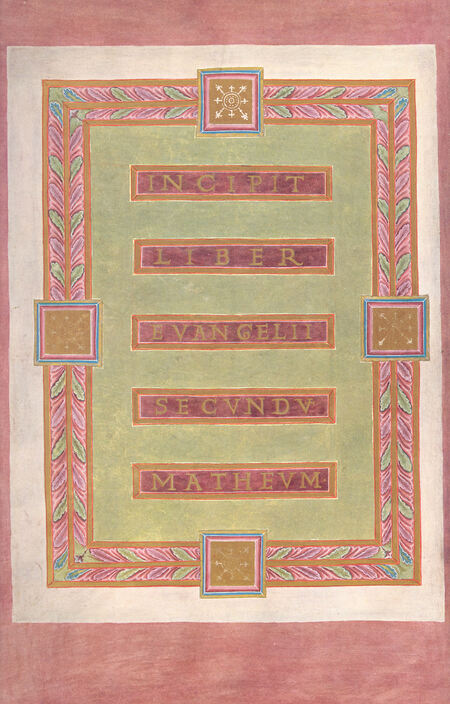 INCIPIT
LIBER
EVANGELII
SECVNDV
MATHEVM